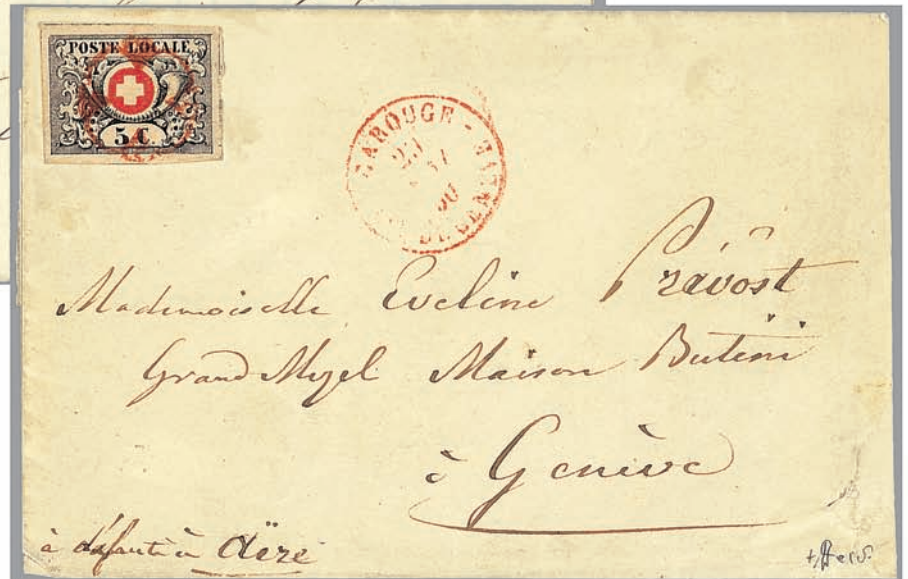 POSTE LOCALE
5 C.
CAROUGE
23
50
Mademoiselle Eveline Prévost
Grand Mézel Maison Butini
à Genève
à défaut à Aïre